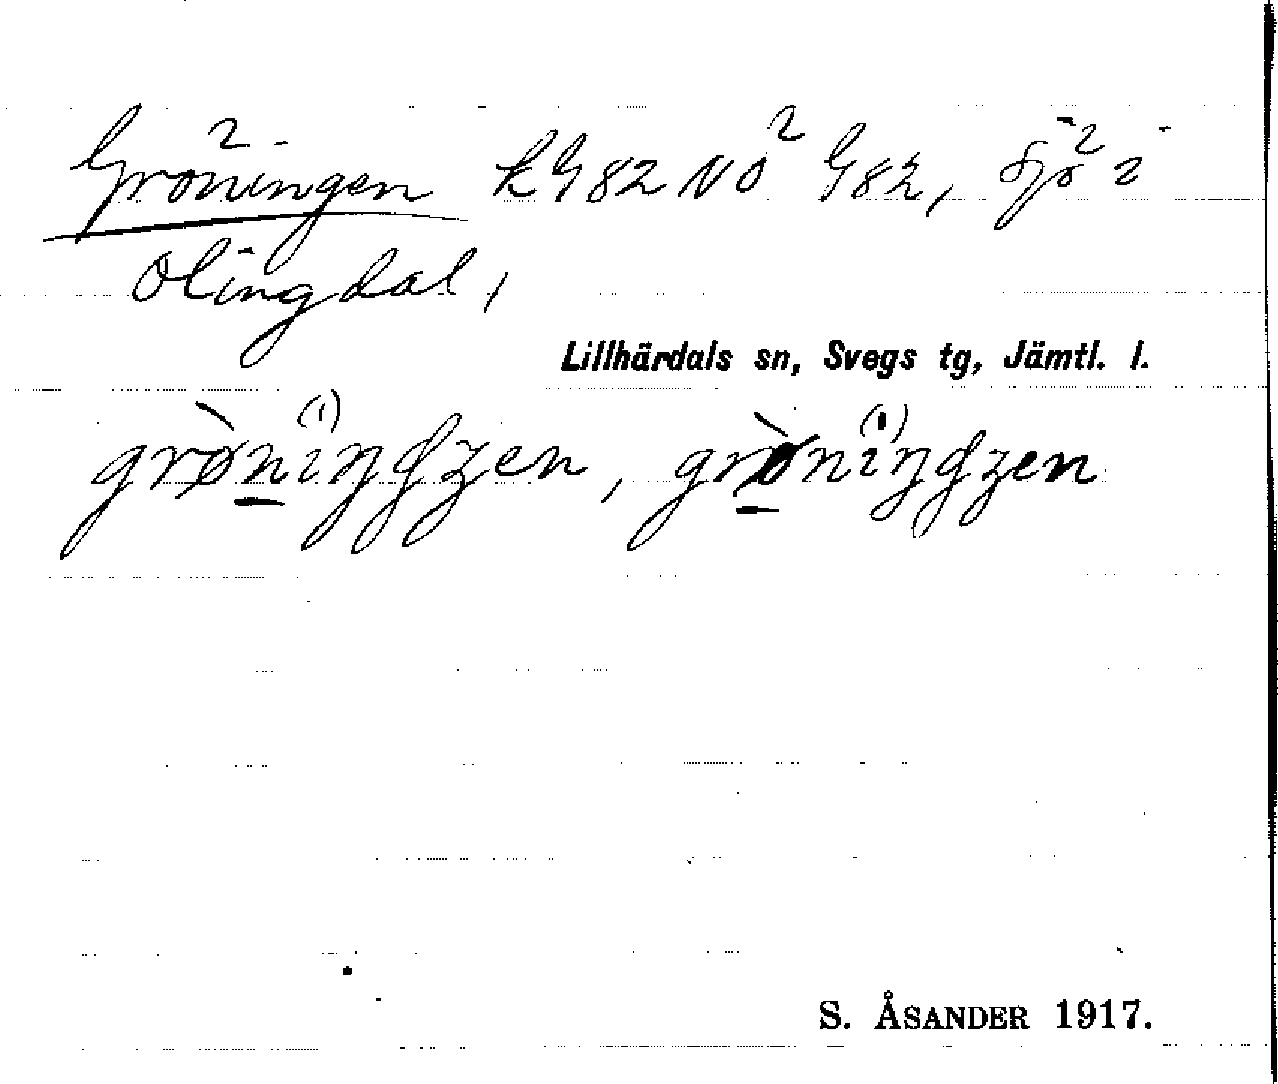 Gröningen k G 82 NO G 82, sjö i
Olingdal,
Lillhärdals sn, Svegs tg, Jämtl. l.
grø̀niŋʤen, grø̀niŋʤen
S. ÅSANDER 1917.